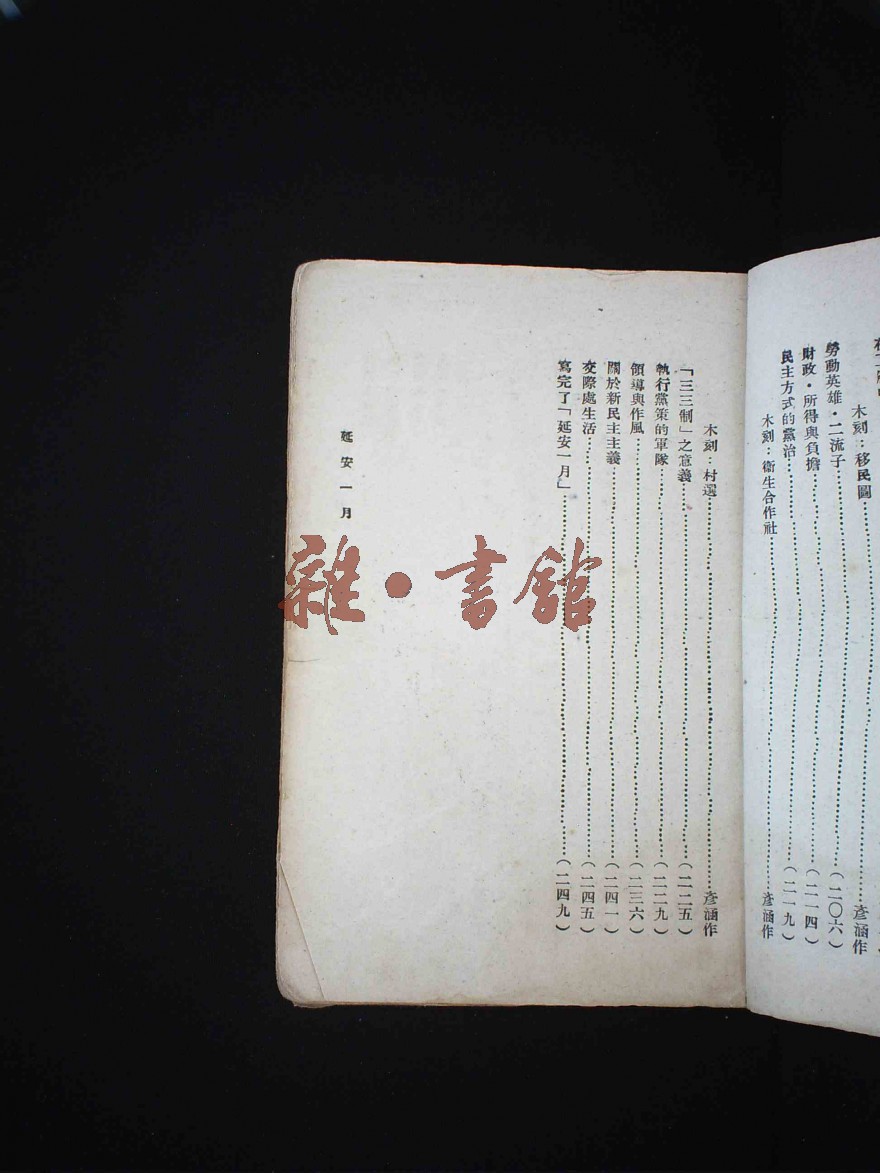 木刻：移民圖……彥涵作
勞動英雄·二流子……(二〇六)
財政·所得與負擔……(二一四)
民主方式的黨治……(二一九)
木刻：衞生合作社……彥涵作
木刻：村選……彥涵作
「三三制」之意義……(二二五)
執行黨策的軍隊……(二二九)
領導與作風……(二三六)
關於新民主主義……(二四一)
交際處生活……(二四五)
寫完了「延安一月」……(二四九)
延安一月
雜·書館